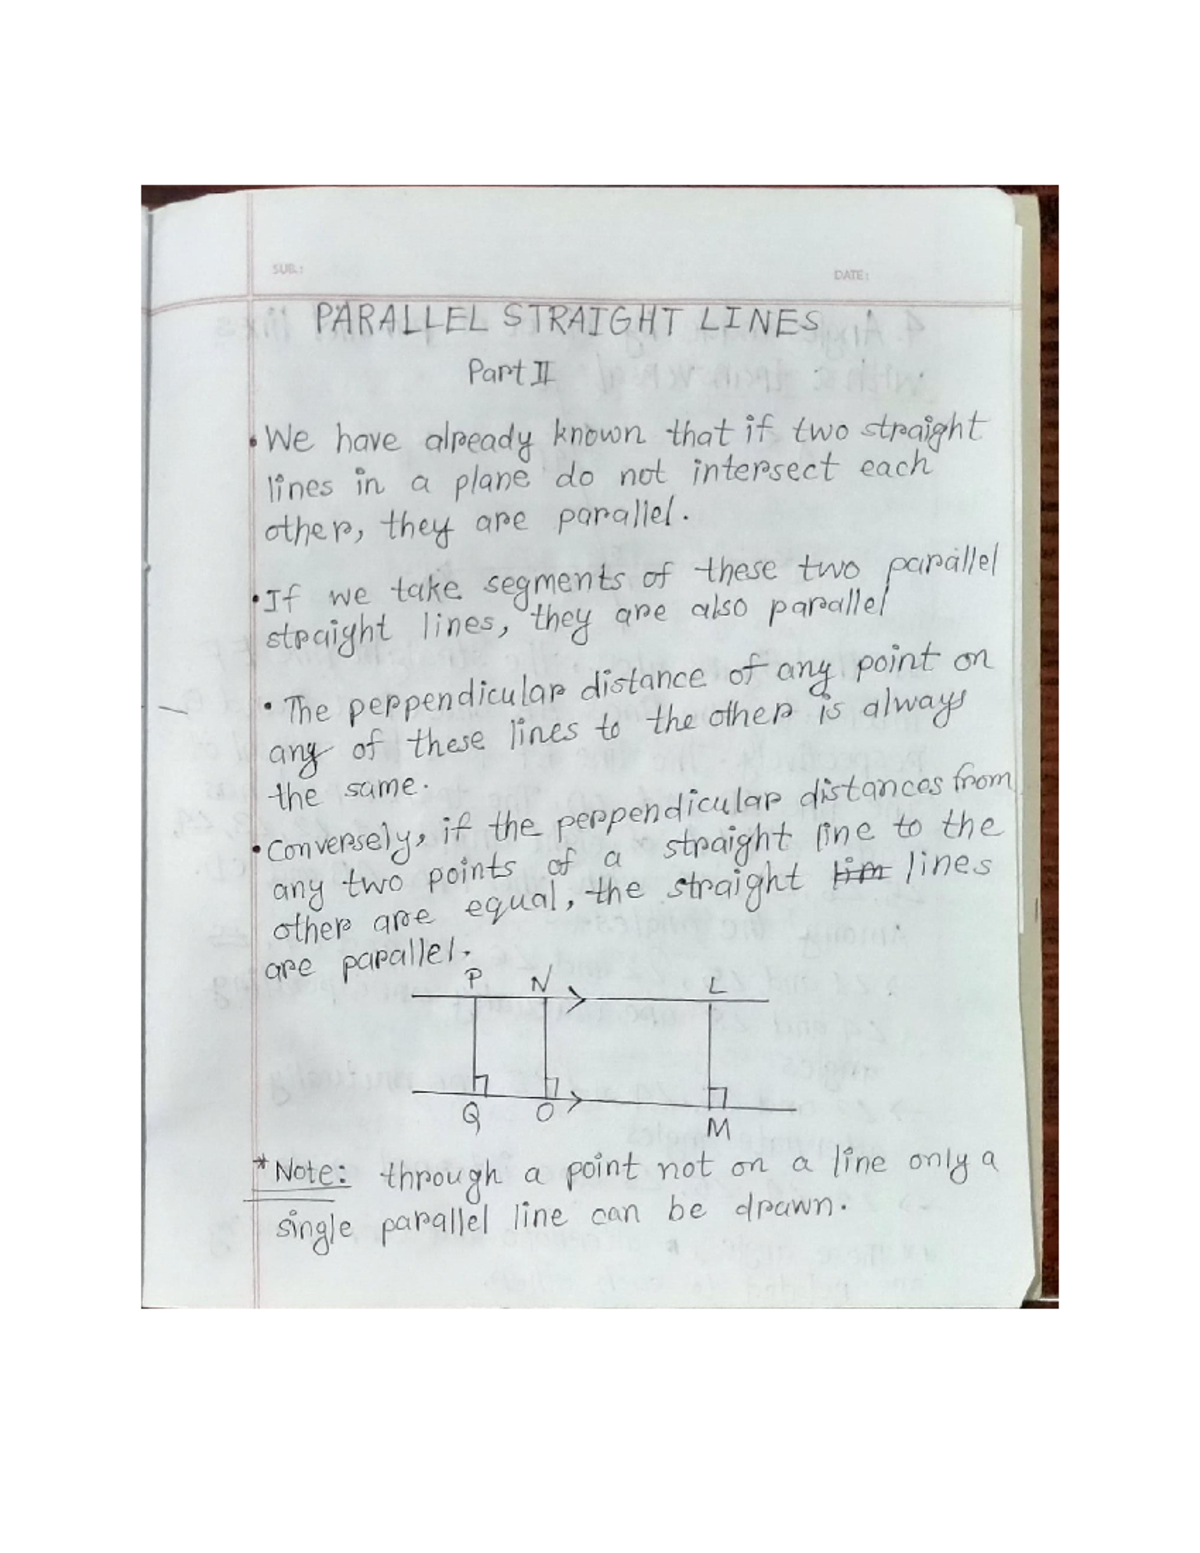 SUB.:
DATE:
PARALLEL STRAIGHT LINES
Part II
• We have already known that if two straight
lines in a plane do not intersect each
other, they are parallel.
• If we take segments of these two parallel
straight lines, they are also parallel
• The perpendicular distance of any point on
any of these lines to the other is always
the same.
• Conversely, if the perpendicular distances from
any two points of a straight line to the
other are equal, the straight lim lines
are parallel.
P N L
Q O M
* Note: through a point not on a line only a
single parallel line can be drawn.